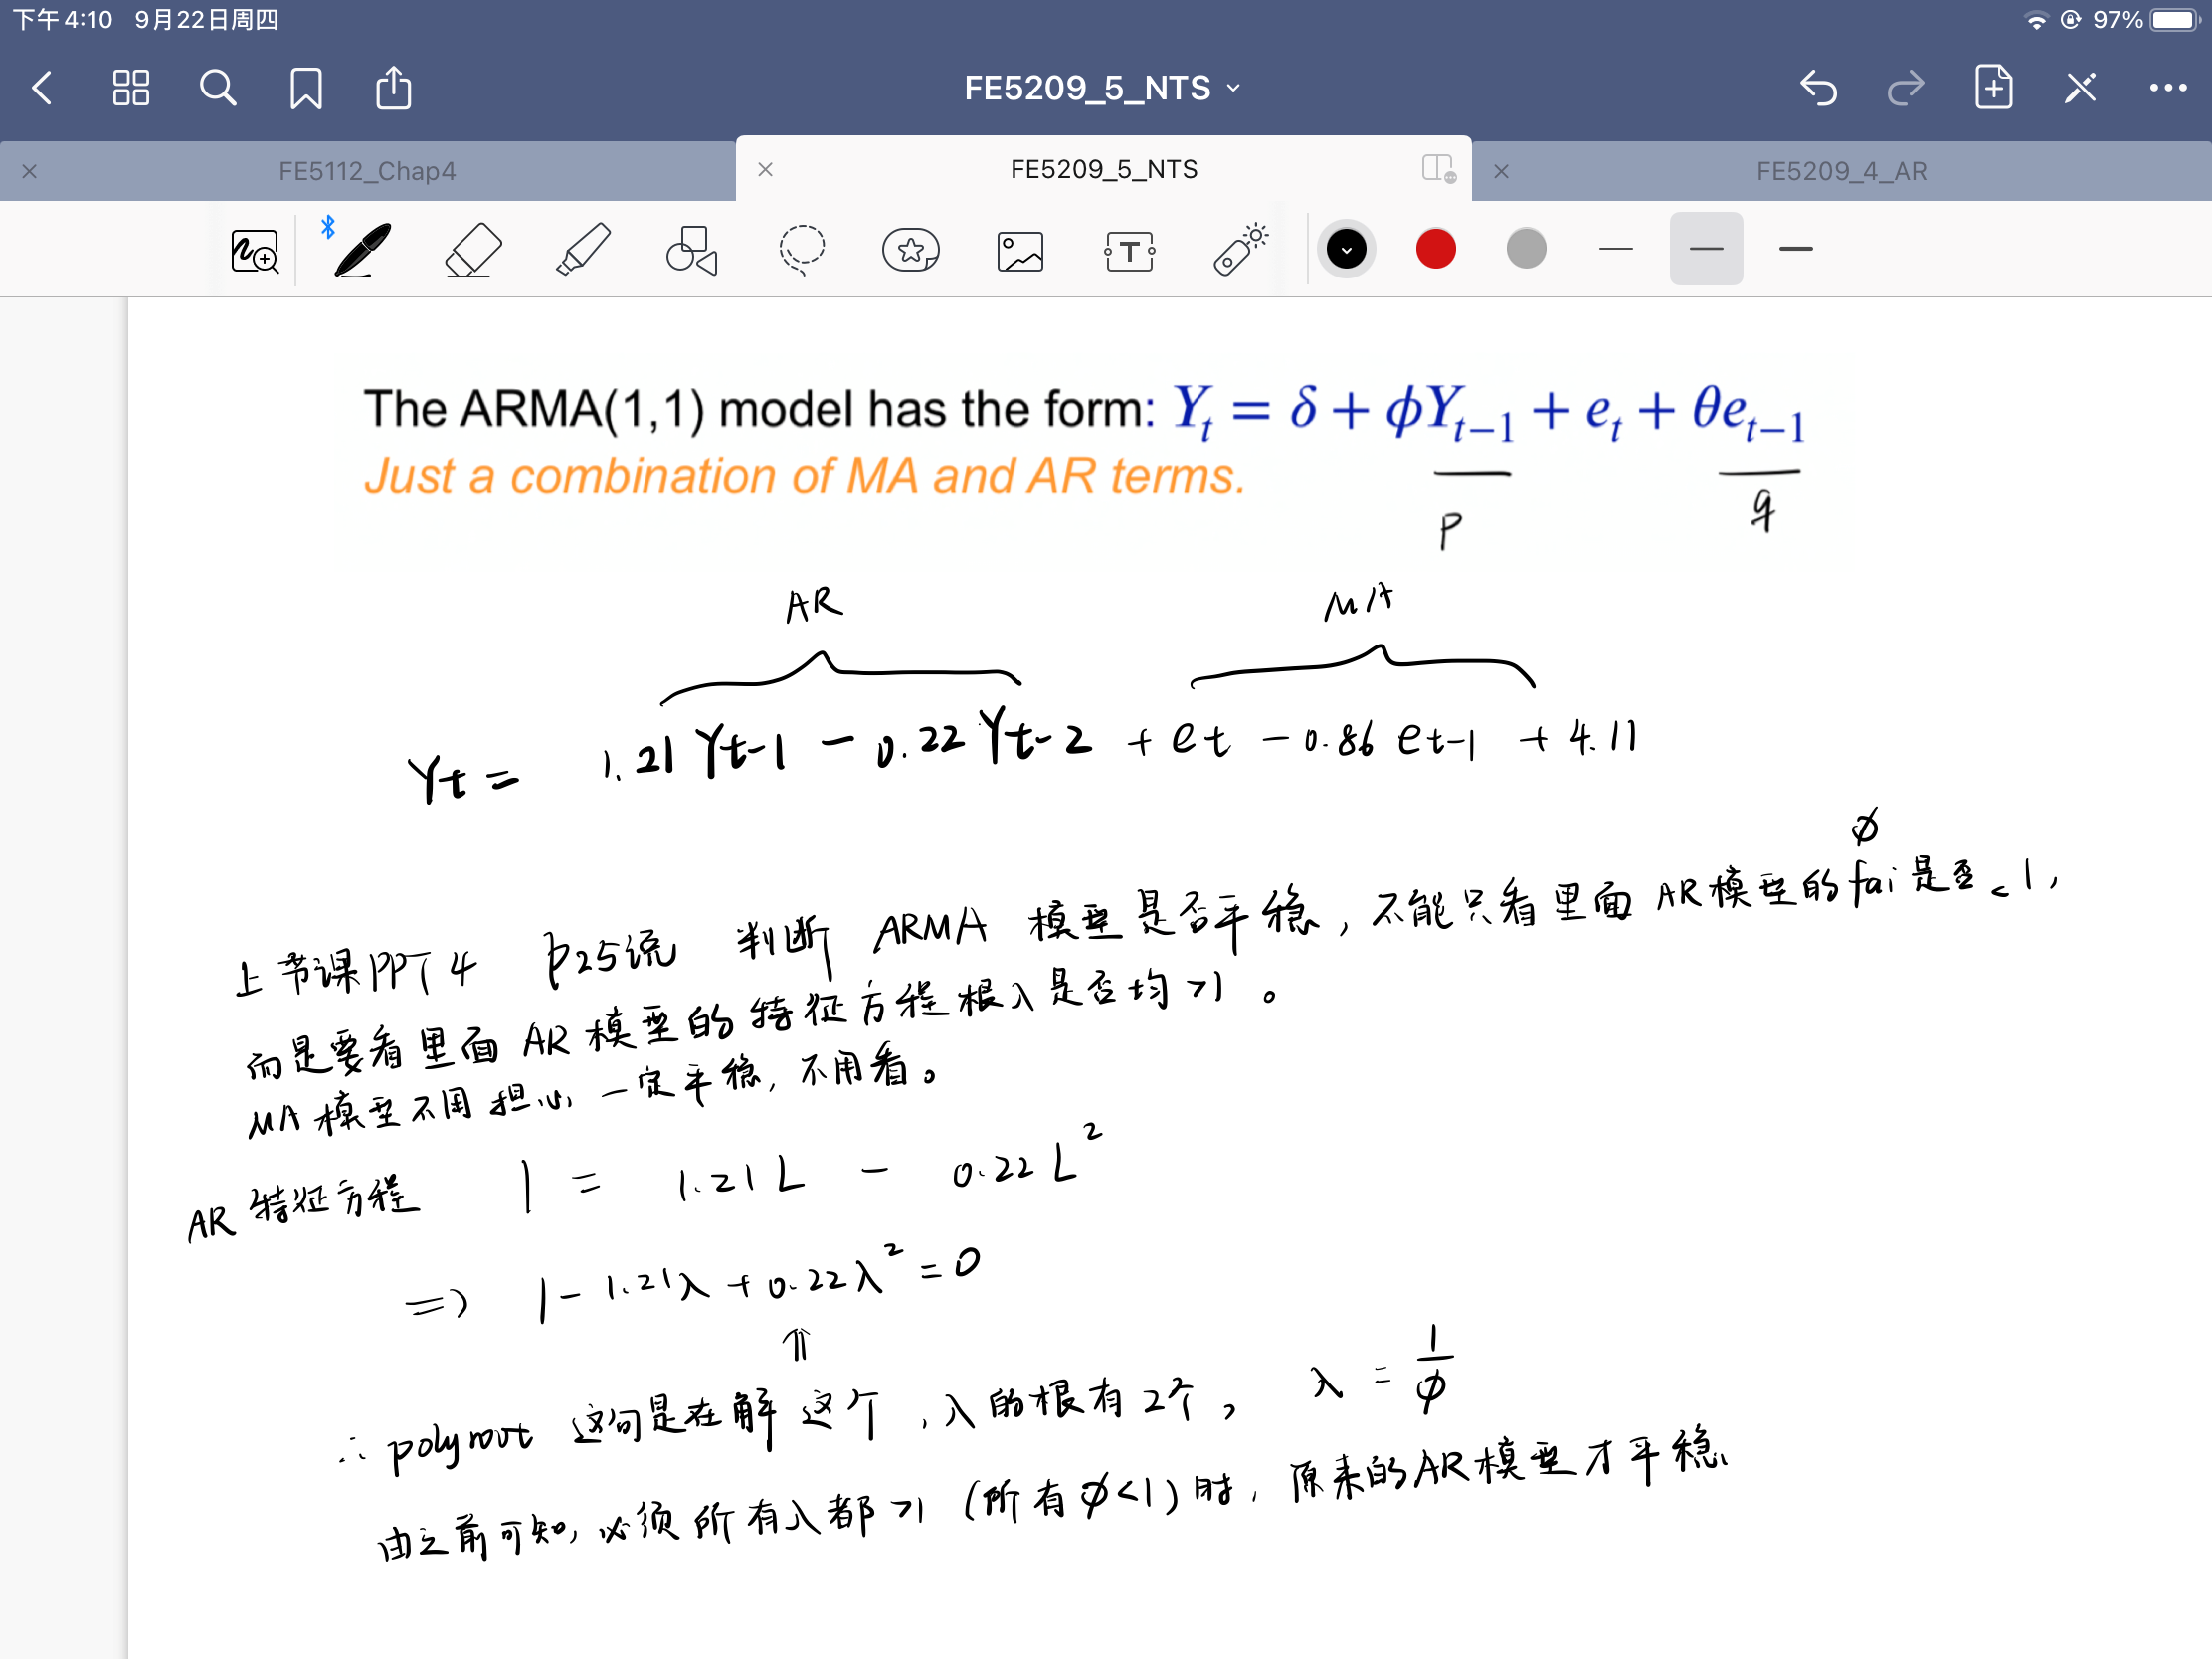 下午4:10 9月22日周四
97%
FE5209_5_NTS
FE5112_Chap4
FE5209_5_NTS
FE5209_4_AR
The ARMA(1,1) model has the form: Yₜ = δ + ϕYₜ₋₁ + eₜ + θeₜ₋₁
Just a combination of MA and AR terms.
p q
AR MA
Yt = 1.21 Yt-1 - 0.22 Yt-2 + et - 0.86 et-1 + 4.11
ϕ
上节课PPT 4 P25说 判断 ARMA 模型是否平稳, 不能只看里面 AR模型的fai是否<1,
而是要看里面 AR模型的特征方程根λ是否均>1。
MA模型不用担心, 一定平稳, 不用看。
AR 特征方程 1 = 1.21 L - 0.22 L²
=> 1 - 1.21λ + 0.22λ² = 0
⇑
∴ polyroot 这句是在解这个, λ的根有2个, λ = 1/ϕ
由之前可知, 必须所有λ都>1 (所有ϕ<1)时, 原来的AR模型才平稳.